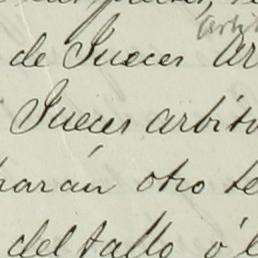 de Jueces ar
Jueces arbitr
narán otro te
del fallo ó l